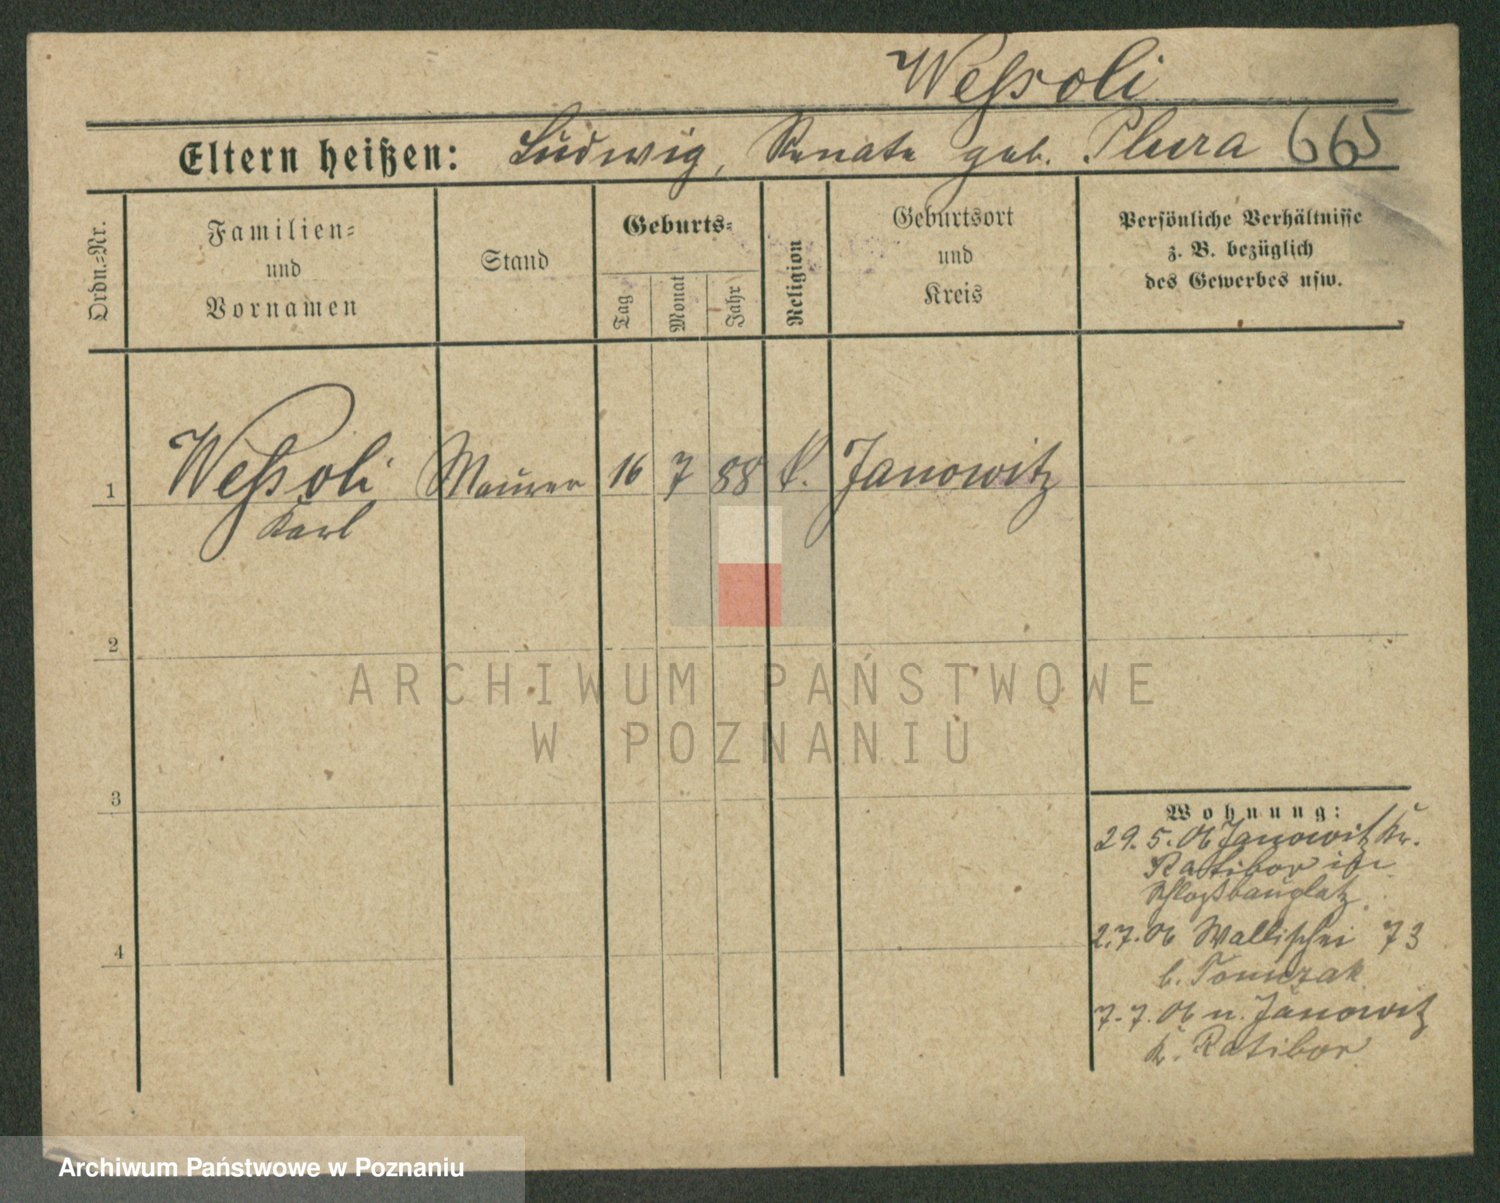 Weßoli
Eltern heißen: Ludwig, Renate geb. Plura 665
Ordn.=Nr.
Familien=
und
Vornamen
Stand
Geburts=
Tag
Monat
Jahr
Religion
Geburtsort
und
Kreis
Persönliche Verhältnisse
z. B. bezüglich
des Gewerbes usw.
1 Weßoli Maurer 16 7 88 k. Janowitz
Karl
2
ARCHIWUM PAŃSTWOWE
W POZNANIU
3
Wohnung:
29.5.06 Janowitz Kr.
Ratibor
Schloßbauplatz
4
2.7.06 Wallischei 73
b. Tomczak
7.7.06 n. Janowitz
K. Ratibor
Archiwum Państwowe w Poznaniu